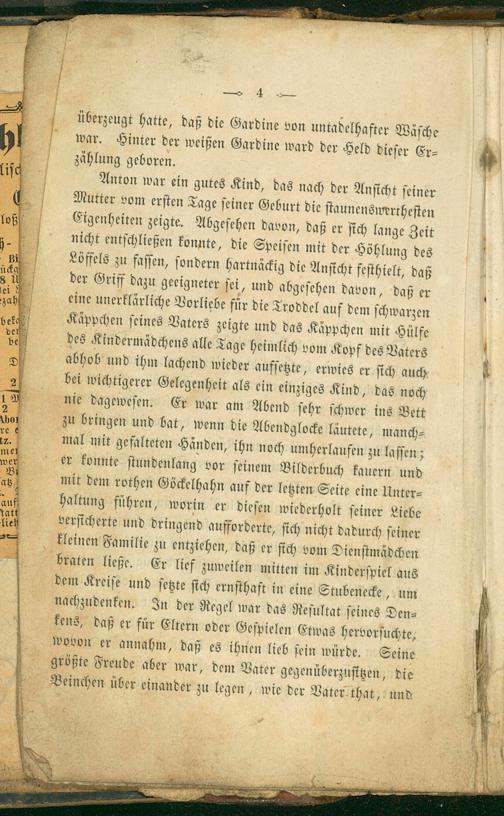 4
überzeugt hatte, daß die Gardine von untadelhafter Wäsche
war. Hinter der weißen Gardine ward der Held dieser Er-
zählung geboren.
Anton war ein gutes Kind, das nach der Ansicht seiner
Mutter vom ersten Tage seiner Geburt die staunenswerthesten
Eigenheiten zeigte. Abgesehen davon, daß er sich lange Zeit
nicht entschließen konnte, die Speisen mit der Höhlung des
Löffels zu fassen, sondern hartnäckig die Ansicht festhielt, daß
der Griff dazu geeigneter sei, und abgesehen davon, daß er
eine unerklärliche Vorliebe für die Troddel auf dem schwarzen
Käppchen seines Vaters zeigte und das Käppchen mit Hülfe
des Kindermädchens alle Tage heimlich vom Kopf des Vaters
abhob und ihm lachend wieder aufsetzte, erwies er sich auch
bei wichtigerer Gelegenheit als ein einziges Kind, das noch
nie dagewesen. Er war am Abend sehr schwer ins Bett
zu bringen und bat, wenn die Abendglocke läutete, manch-
mal mit gefalteten Händen, ihn noch umherlaufen zu lassen;
er konnte stundenlang vor seinem Bilderbuch kauern und
mit dem rothen Göckelhahn auf der letzten Seite eine Unter-
haltung führen, worin er diesen wiederholt seiner Liebe
versicherte und dringend aufforderte, sich nicht dadurch seiner
kleinen Familie zu entziehen, daß er sich vom Dienstmädchen
braten ließe. Er lief zuweilen mitten im Kinderspiel aus
dem Kreise und setzte sich ernsthaft in eine Stubenecke, um
nachzudenken. In der Regel war das Resultat seines Den-
kens, daß er für Eltern oder Gespielen Etwas hervorsuchte,
wovon er annahm, daß es ihnen lieb sein würde. Seine
größte Freude aber war, dem Vater gegenüberzusitzen, die
Beinchen über einander zu legen, wie der Vater that, und